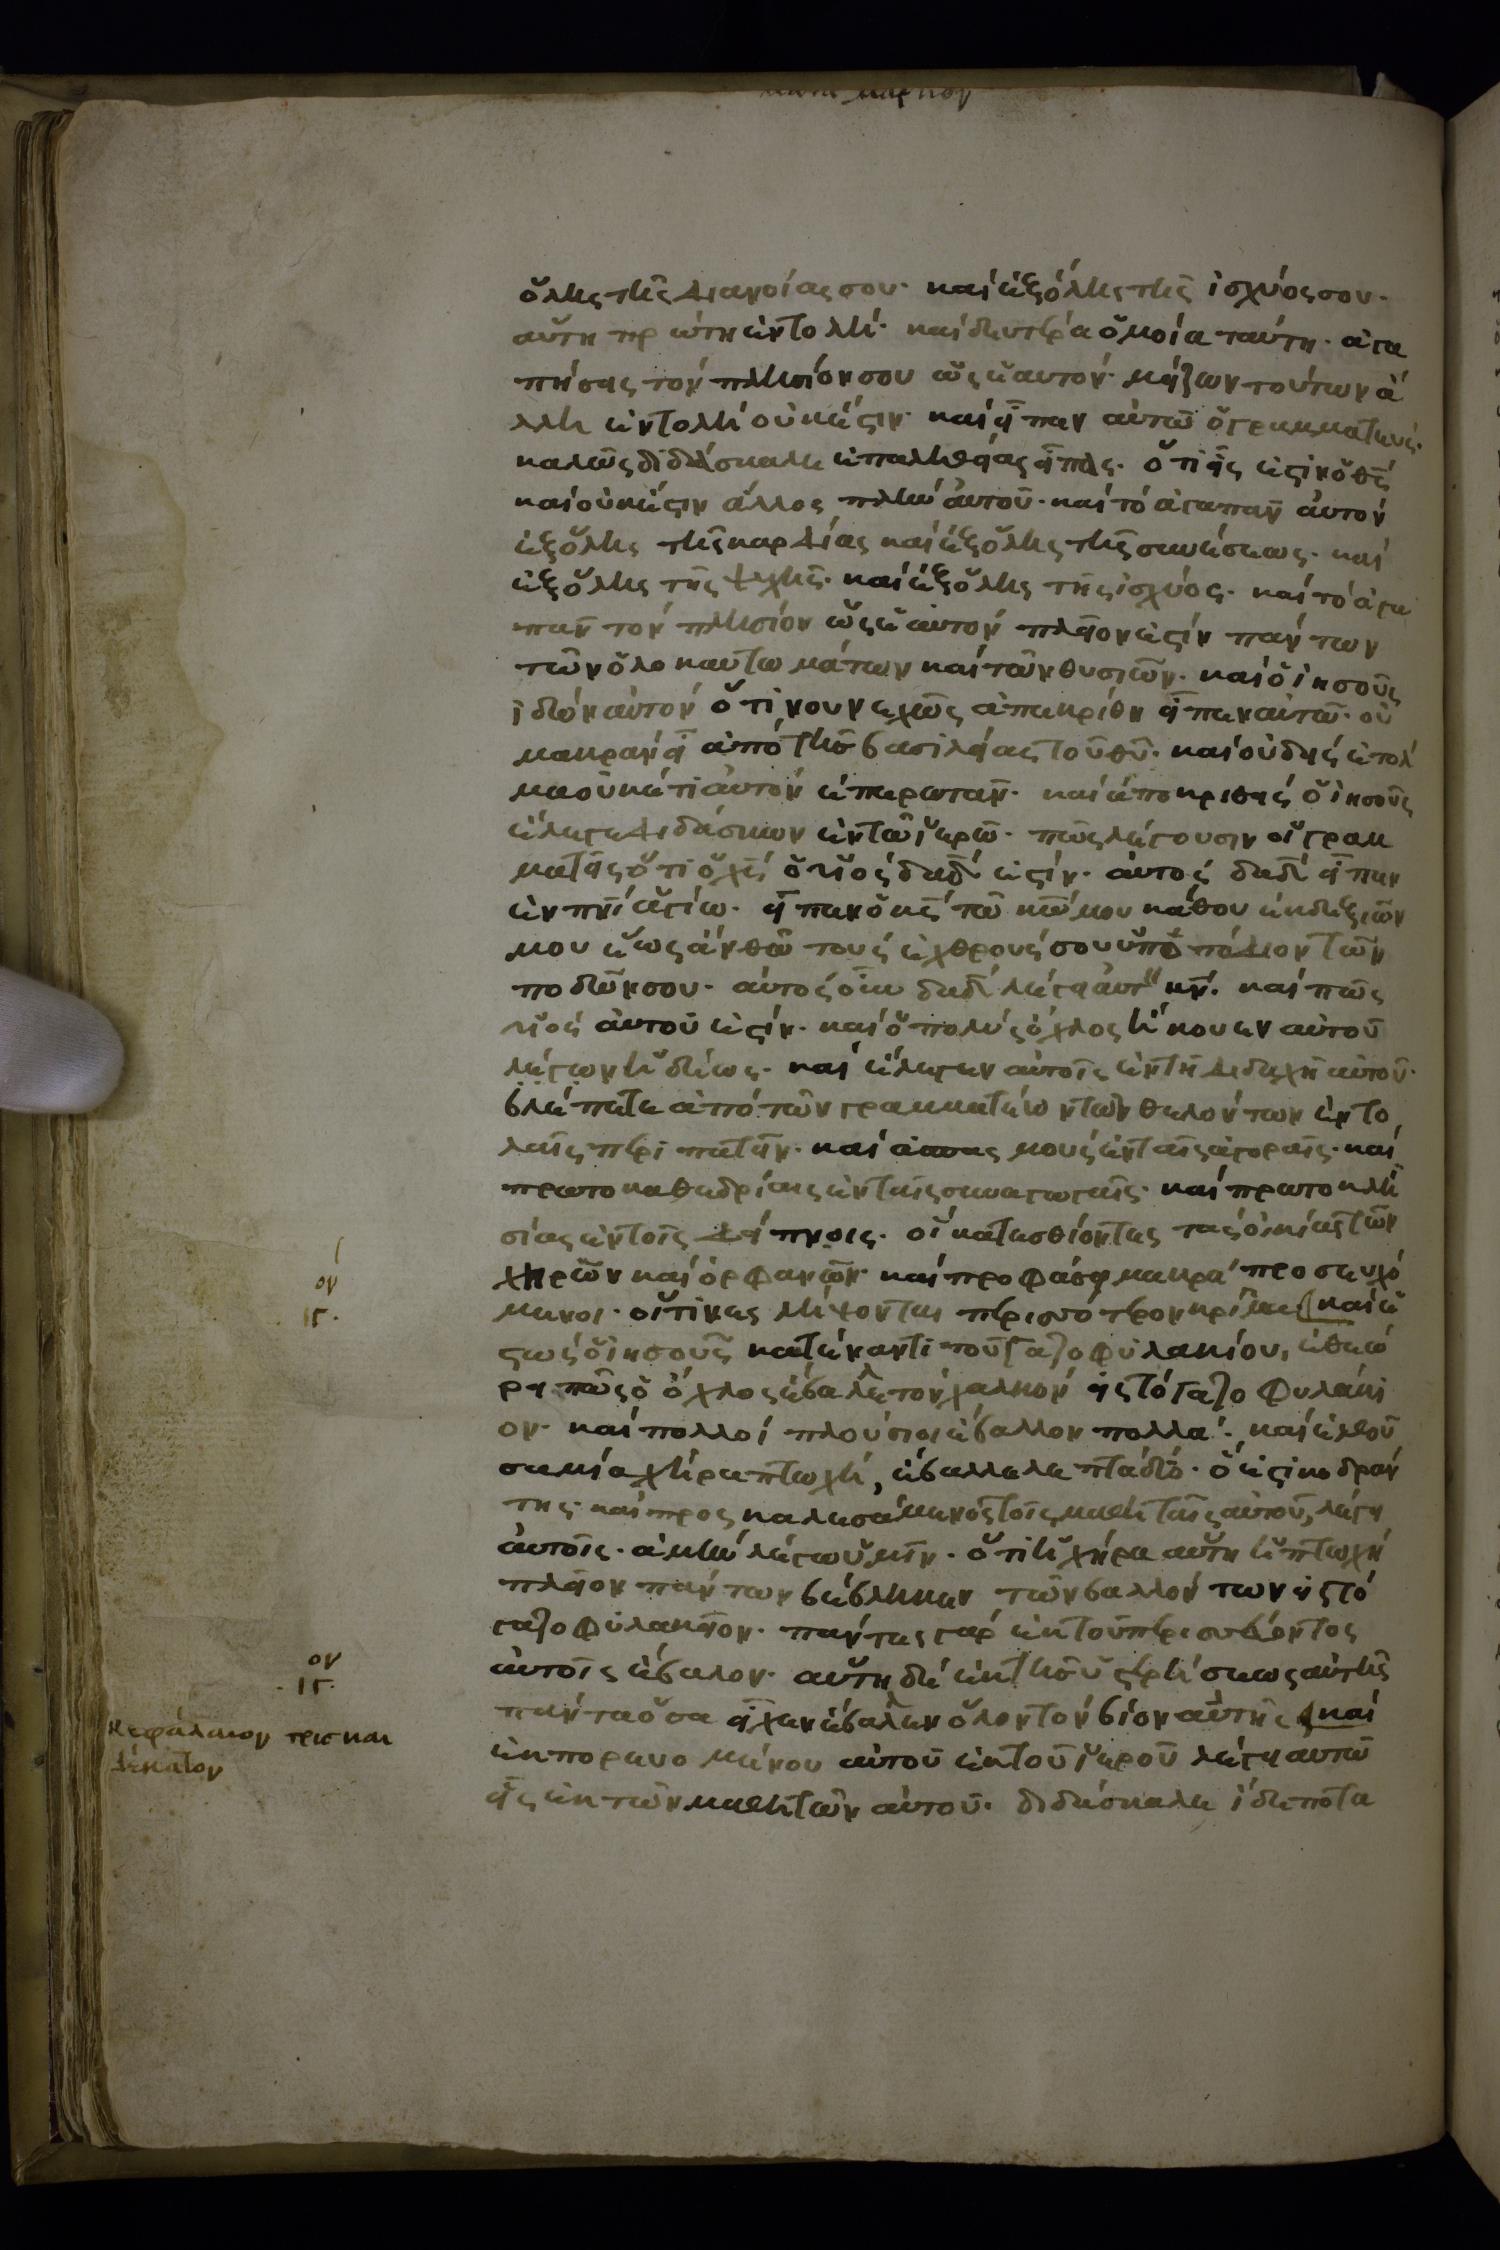 κατα μαρκον
ὅλης τῆς διανοίας σου· καὶ ἐξ ὅλης τῆς ἰσχύος σου·
αὕτη πρώτη ἐντολή· καὶ δευτέρα ὁμοία ταύτη· ἀγα
πήσης τὸν πλησίον σου ὡς ἑαυτόν· μείζων τούτων ἄ
λλη ἐντολὴ οὐκ ἔστιν· καὶ εἶπεν αὐτῶ ὁ γραμματεύς·
καλῶς διδάσκαλε ἐπ αληθείας εἶπες· ὅτι εἷς ἐστὶν ὁ θς
καὶ οὐκ ἔστιν ἄλλος πλὴν αὐτοῦ· καὶ τὸ ἀγαπᾶν αὐτὸν
ἐξ ὅλης τῆς καρδίας καὶ ἐξ ὅλης τῆς συνέσεως· καὶ
ἐξ ὅλης τῆς ψυχῆς· καὶ ἐξ ὅλης τῆς ἰσχύος· καὶ τὸ ἀγα
πᾶν τὸν πλησίον ὡς ἑαυτὸν πλεῖον ἐστὶν πάντων
τῶν ὁλοκαυτωμάτων καὶ τῶν θυσιῶν· καὶ ὁ ἰησοῦς
ἰδὼν αὐτὸν ὅτι νουνεχῶς ἀπεκρίθη εἶπεν αὐτῶ· οὐ
μακρὰν εἶ ἀπὸ τῆς βασιλείας τοῦ θῦ· καὶ οὐδεὶς ἐτόλ
μα οὐκέτι αὐτὸν ἐπερωτᾶν· καὶ ἀποκριθεὶς ὁ ἰησοῦς
ἔλεγε διδάσκων ἐν τῶ ἱερῶ· πῶς λέγουσιν οἱ γραμ
ματεῖς ὅτι ὁ χς ὁ υἱὸς δαδ ἐστίν· αὐτὸς δαδ εἶπεν
ἐν πνι ἁγίω· εἶπεν ὁ κς τῶ κω μου κάθου ἐκ δεξιῶν
μου ἕως ἂν θῶ τοὺς ἐχθρούς σου ὑποπόδιον τῶν
ποδῶν σου· αὐτὸς οὖν δαδ λέγει αὐτὸν κν· καὶ πῶς
υἱὸς αὐτοῦ ἐστίν· καὶ ὁ πολὺς ὄχλος ἤκουεν αὐτοῦ
λέγων ἡδέως· καὶ ἔλεγεν αὐτοῖς ἐν τῆ διδαχῆ αὐτοῦ·
βλέπετε ἀπὸ τῶν γραμματέων τῶν θελόντων ἐν στο
λαῖς περιπατεῖν· καὶ ἀσπασμοὺς ἐν ταῖς ἀγοραῖς· καὶ
πρωτοκαθεδρίαις ἐν ταῖς συναγωγαῖς· καὶ πρωτοκλη
σίας ἐν τοῖς δείπνοις· οἱ κατεσθίοντες τὰς οἰκίας τῶν
χηρῶν καὶ ὀρφανῶν· καὶ προφάσει μακρὰ προσευχό
μενοι· οἵτινες λήψονται περισσότερον κρίμα· καὶ ἑ
στὼς ὁ ἰησοῦς κατέναντι τοῦ γαζοφυλακίου, ἐθεώ
ρει πῶς ὁ ὄχλος ἔβαλλε τὸν χαλκὸν εἰς τὸ γαζοφυλάκι
ον· καὶ πολλοὶ πλούσιοι ἔβαλλον πολλά· καὶ ἐλθοῦ
σα μία χήρα πτωχὴ, ἔβαλλε λεπτὰ δύο· ὅ ἐστι κοδράν
της· καὶ προσκαλεσάμενος τοῖς μαθηταῖς αὐτοῦ, λέγει
αὐτοῖς· ἀμὴν λέγω ὑμῖν· ὅτι ἡ χήρα αὕτη ἡ πτωχὴ
πλεῖον πάντων βέβληκεν τῶν βαλλόντων εἰς τὸ
γαζοφυλακεῖον· πάντες γὰρ ἐκ τοῦ περισσεύοντος
αὐτοῖς ἔβαλον· αὕτη δὲ ἐκ τῆς ὑστερήσεως αὐτῆς
πάντα ὅσα εἶχεν ἔβαλεν ὅλον τὸν βίον αὐτῆς· καὶ
ἐκπορευομένου αὐτοῦ ἐκ τοῦ ἱεροῦ λέγει αὐτῶ
εἷς ἐκ τῶν μαθητῶν αὐτοῦ· διδάσκαλε ἴδε ποτα
ον
ιγ·
ον
ιγ·
κεφάλαιον τρισκαι
δέκατον